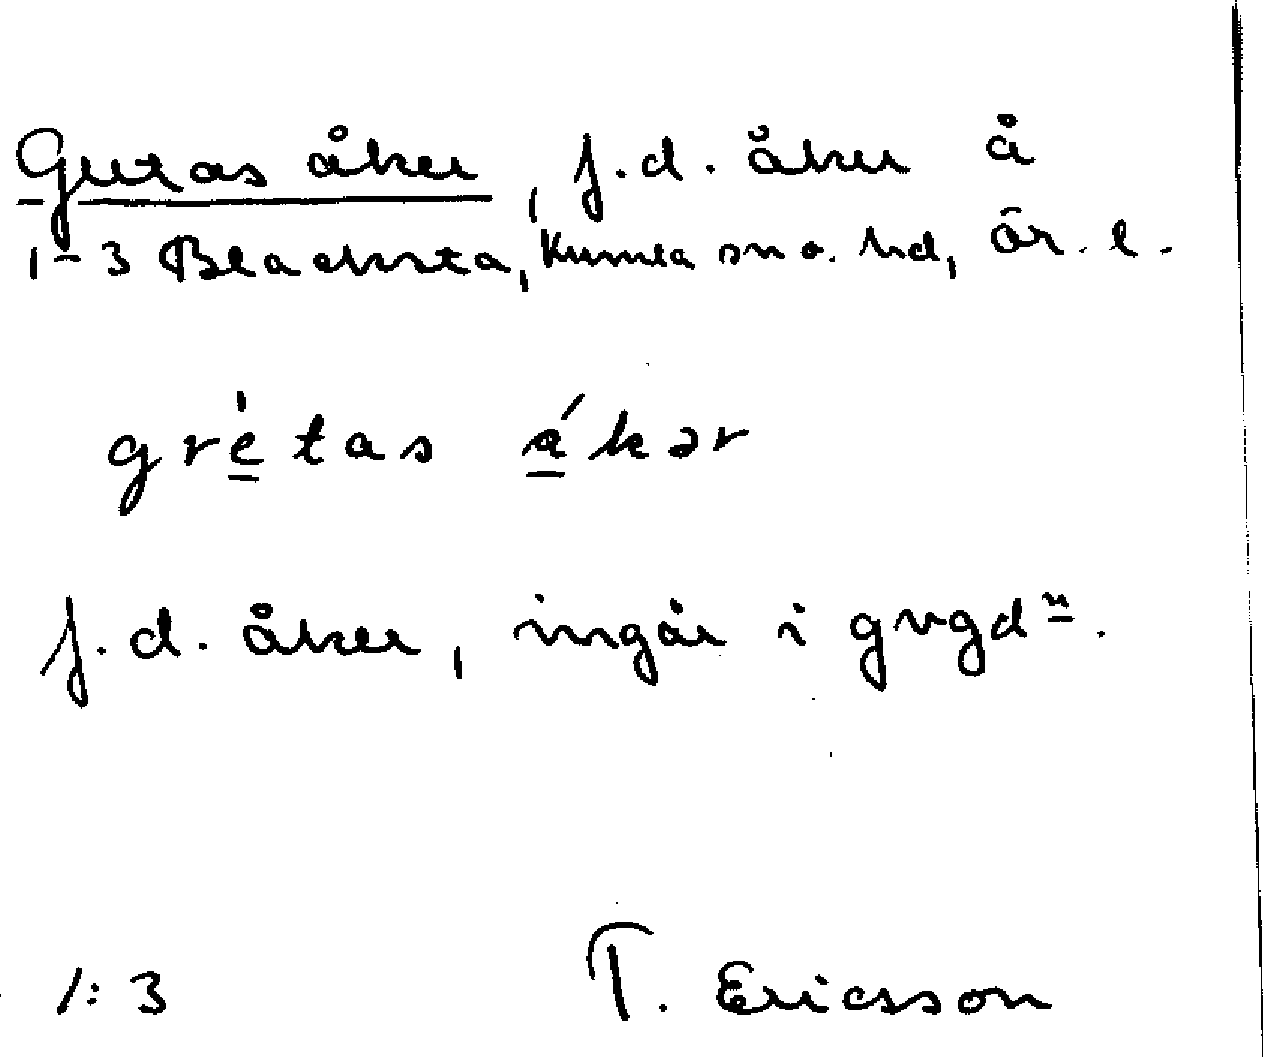 Gretas åker, f.d. åker å
1-3 Blacksta, Kumla sn o. hd, Ör. l.
gré̲tas á̲kər
f.d. åker, ingår i gvgdⁿ.
1:3 T. Ericsson